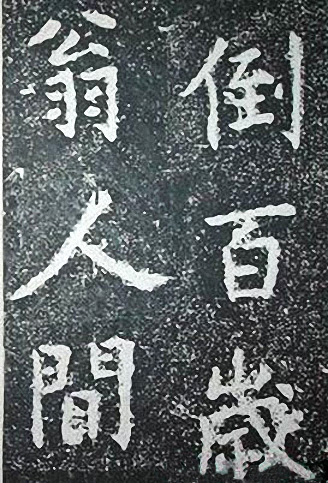 倒百歳
翁人間